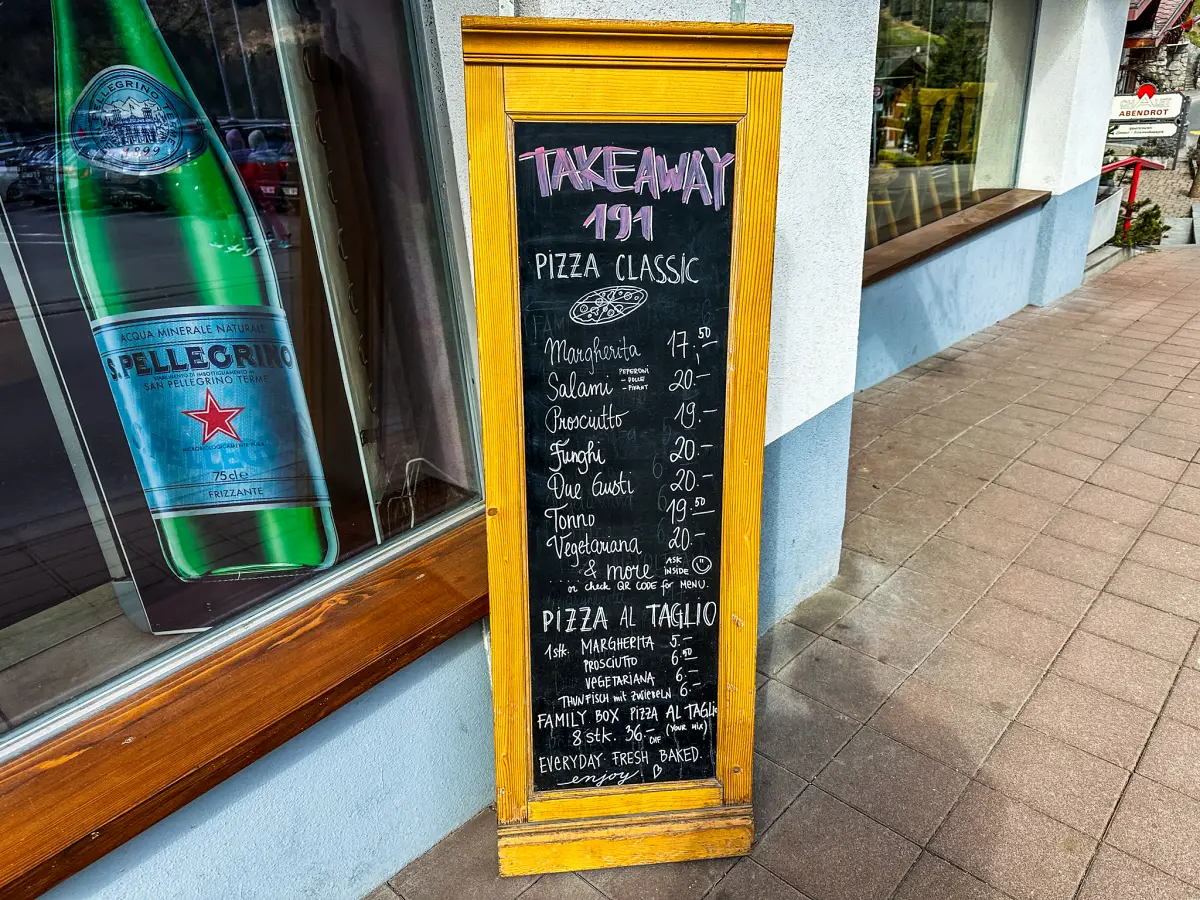 S.PELLEGRINO TERME
1899
ACQUA MINERALE NATURALE
S.PELLEGRINO
STABILIMENTO DI IMBOTTIGLIAMENTO IN
SAN PELLEGRINO TERME
MICROBIOLOGICAMENTE PURA
75cl e
FRIZZANTE
TAKEAWAY
191
PIZZA CLASSIC
Margherita 17.50
Salami PEPERONI - DOLCE - PIKANT 20.-
Prosciutto 19.-
Funghi 20.-
Due Gusti 20.-
Tonno 19.50
Vegetariana 20.-
& more ASK INSIDE
or check QR CODE for MENU.
PIZZA AL TAGLIO
1stk. MARGHERITA 5.-
PROSCIUTO 6.50
VEGETARIANA 6.-
THUNFISCH mit ZWIEBELN 6.-
FAMILY BOX PIZZA AL TAGLIO
8 stk. 36.- CHF (YOUR MIX)
EVERYDAY FRESH BAKED.
enjoy
CHALET
ABENDROT